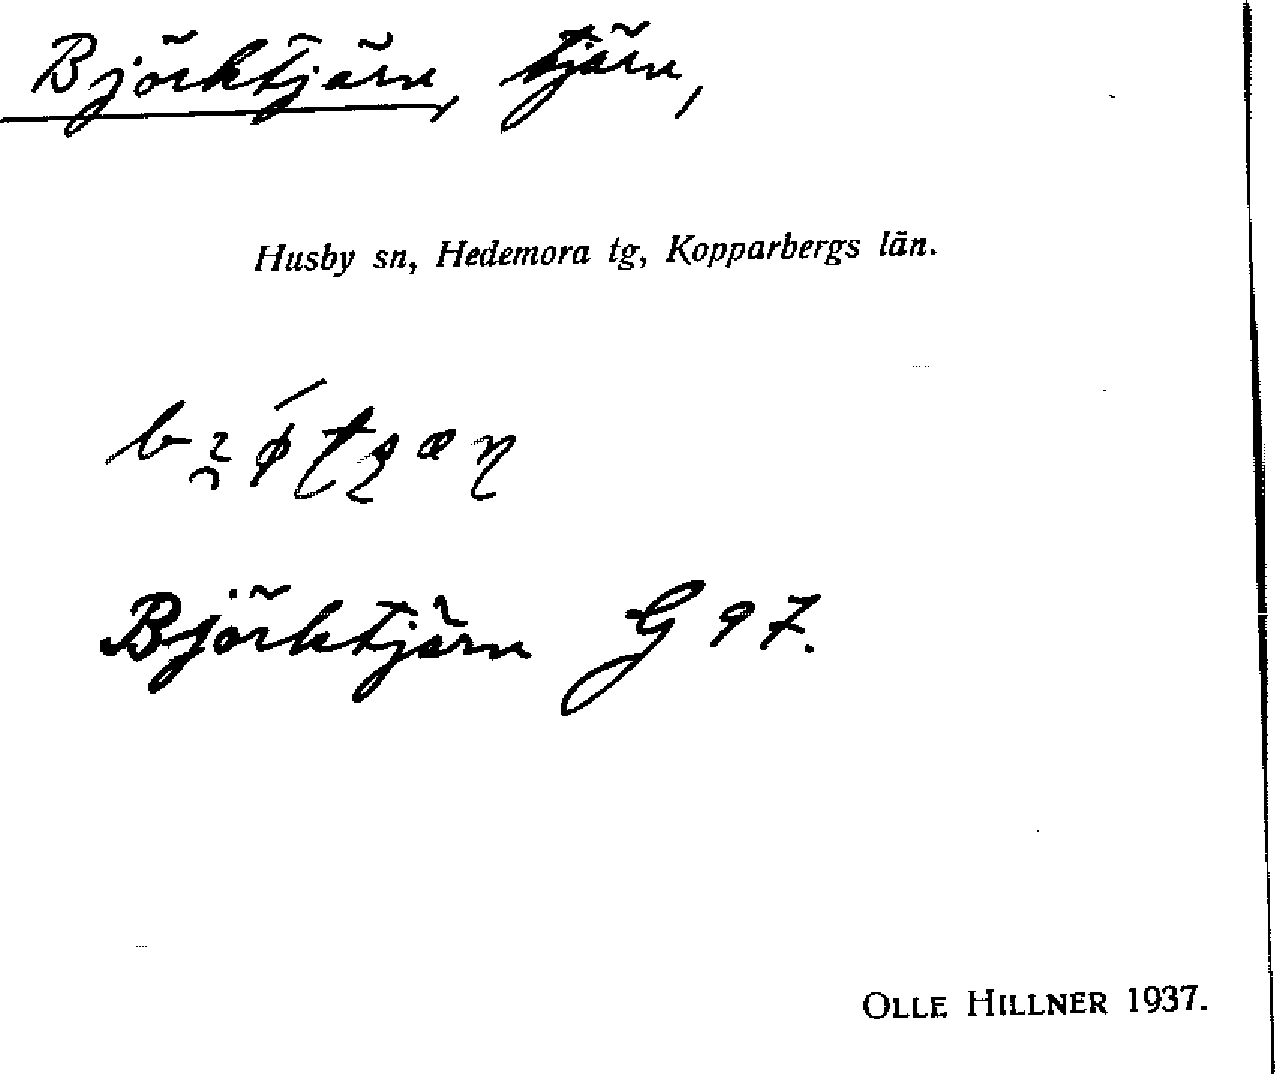 Björktjärn, tjärn,
Husby sn, Hedemora tg, Kopparbergs län.
Björktjärn G 97.
OLLE HILLNER 1937.